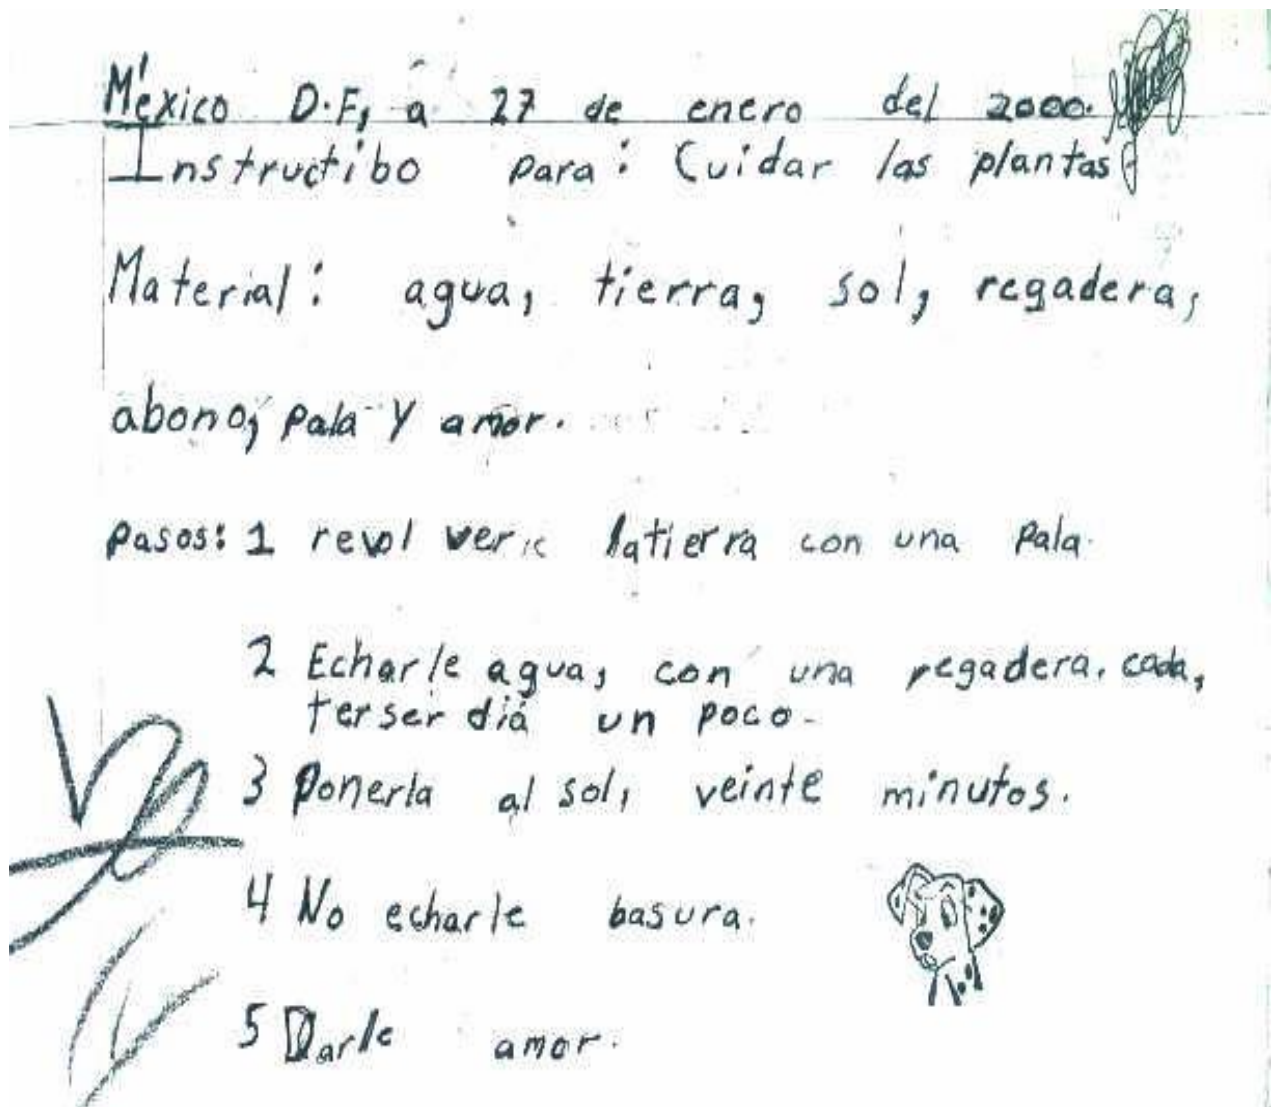 México D.F, a 27 de enero del 2000.
Instructibo para: Cuidar las plantas
Material: agua, tierra, sol, regadera,
abono, pala y amor.
Pasos: 1 revol ver latierra con una pala.
2 Echarle agua, con una regadera. cada,
terser diá un poco.
3 Ponerla al sol, veinte minutos.
4 No echarle basura.
5 Darle amor.